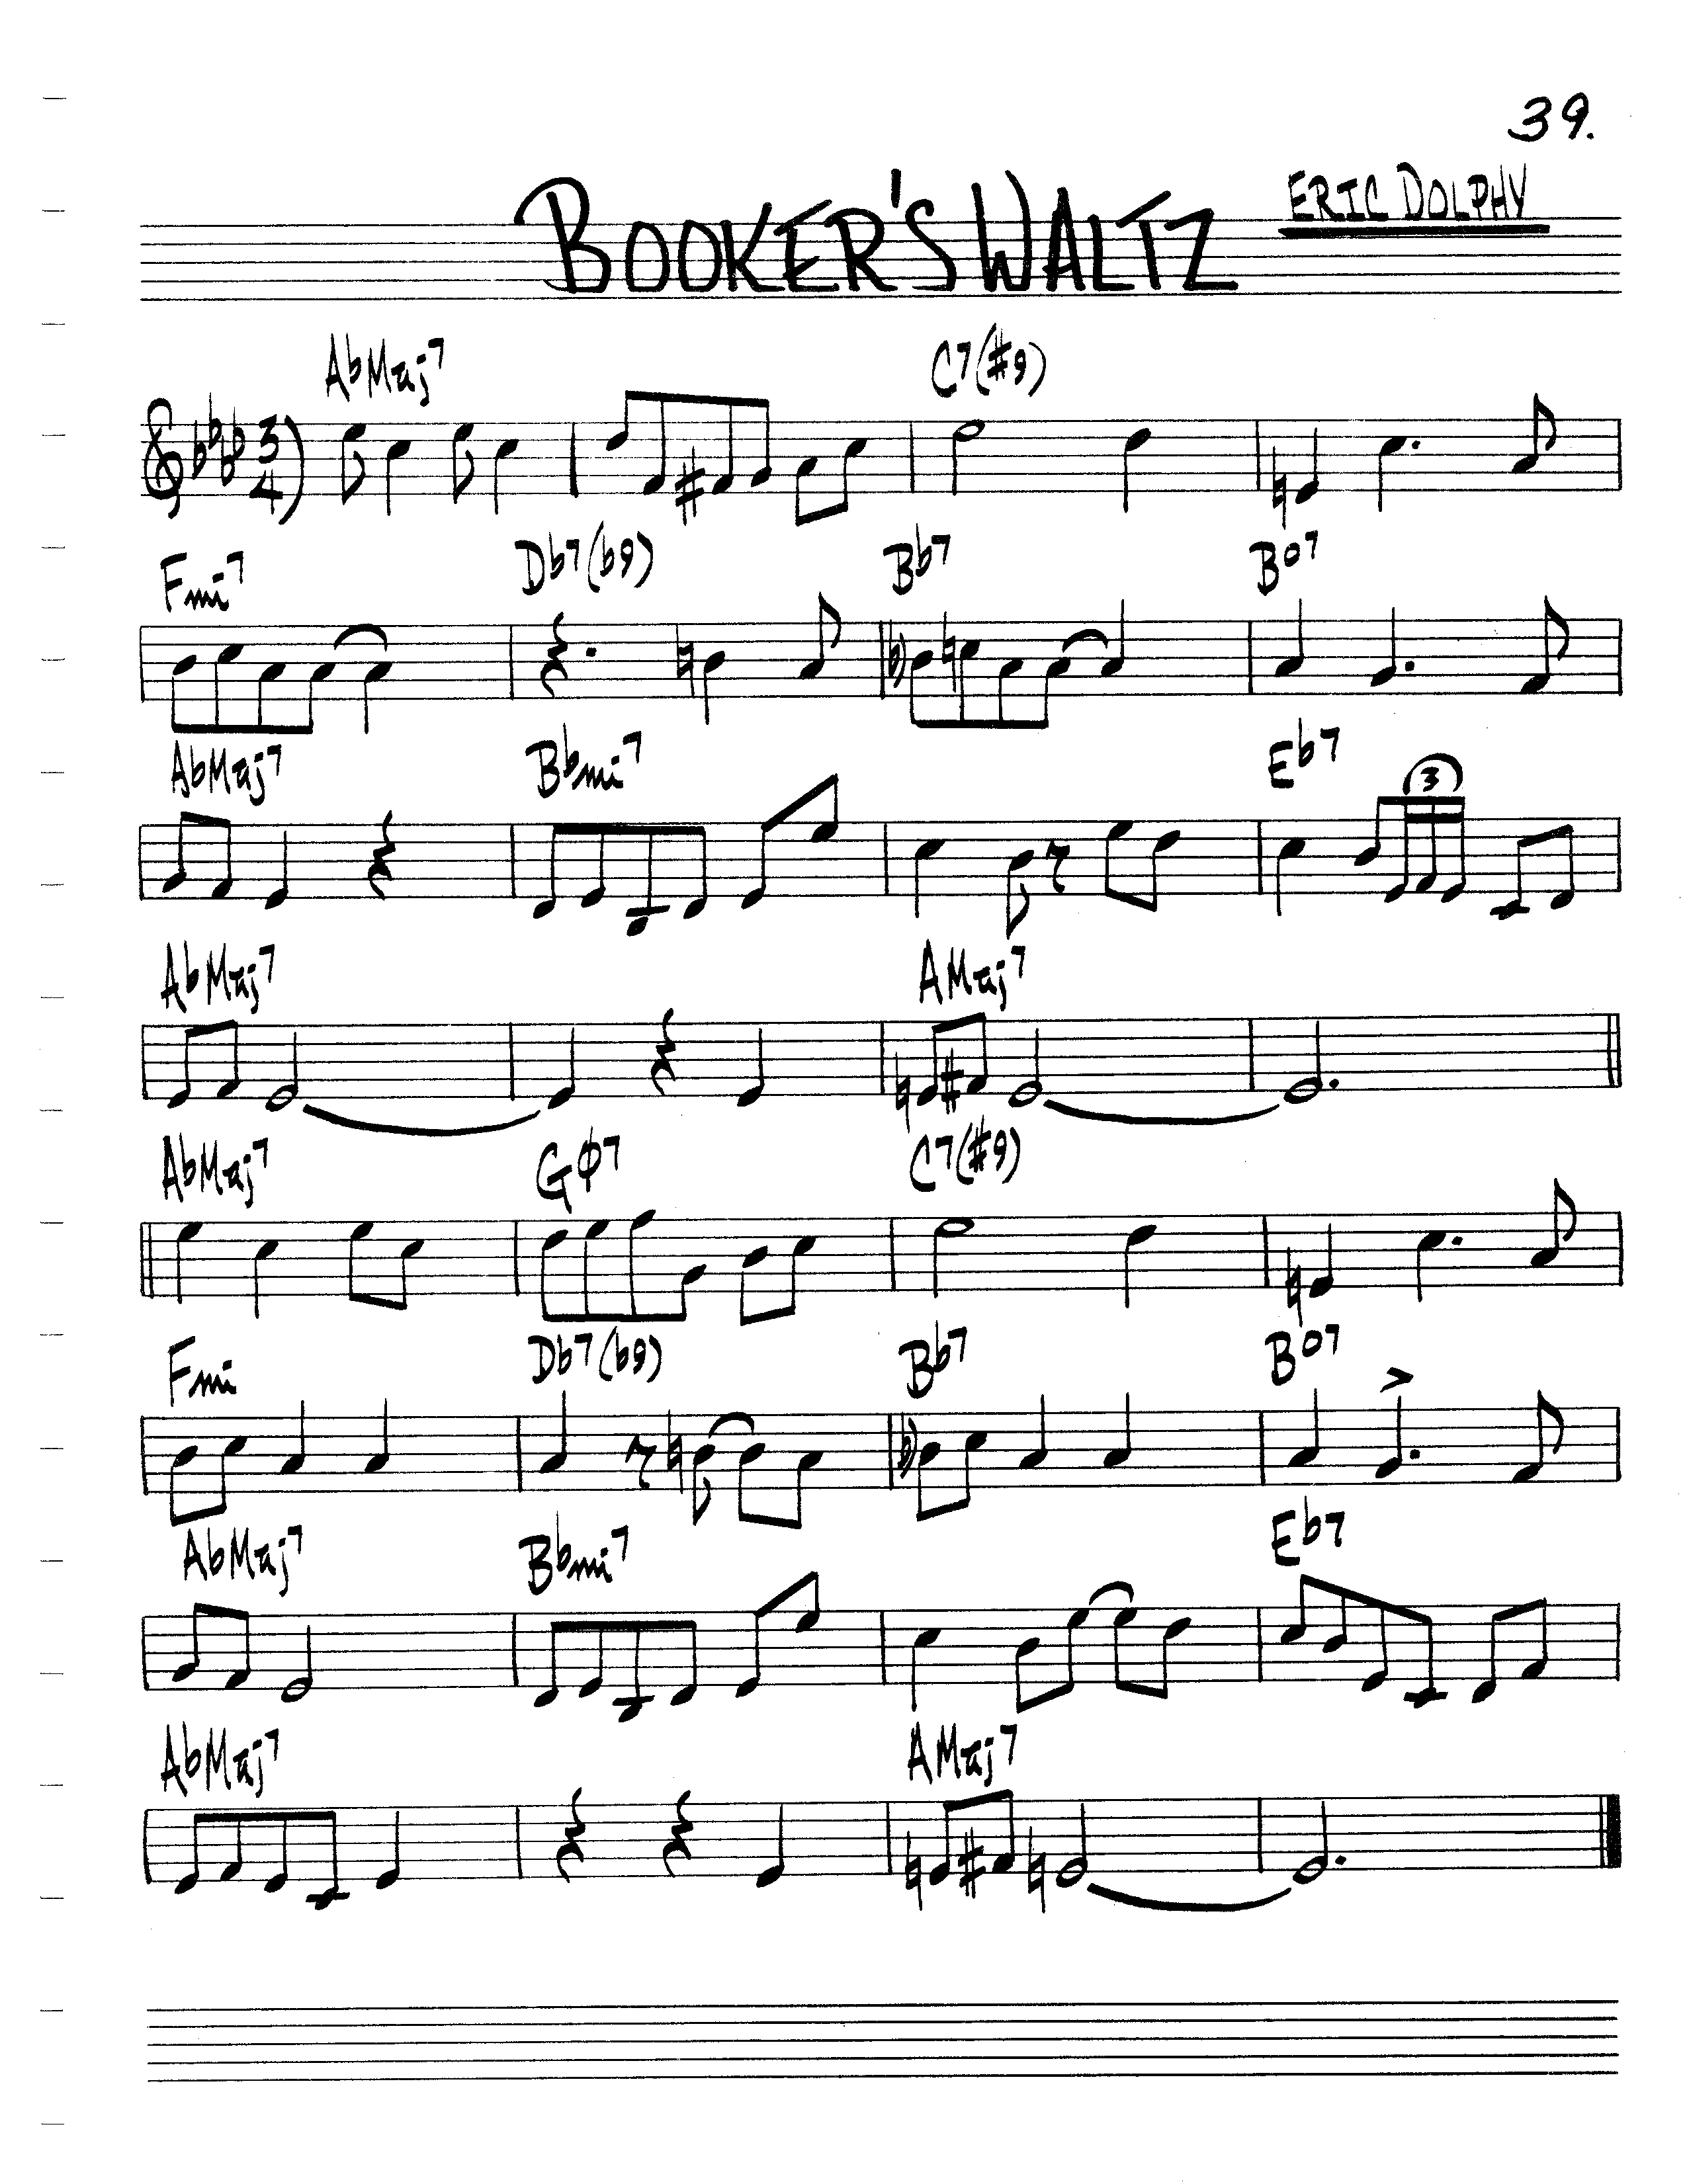 39.
BOOKER'S WALTZ
ERIC DOLPHY
AbMaj7 C7(#9)
3
4
Fmi7 Db7(b9) Bb7 Bo7
AbMaj7 Bbmi7 Eb7
3
AbMaj7 AMaj7
AbMaj7 Gø7 C7(#9)
Fmi Db7(b9) Bb7 Bo7
AbMaj7 Bbmi7 Eb7
AbMaj7 AMaj7